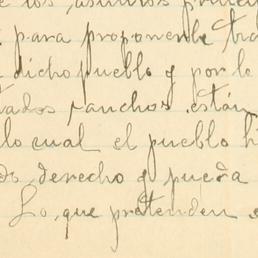 los asuntos
para proponerle
dicho pueblo y por lo
ranchos están
lo cual el pueblo
derecho y pueda
Lo que pretenden